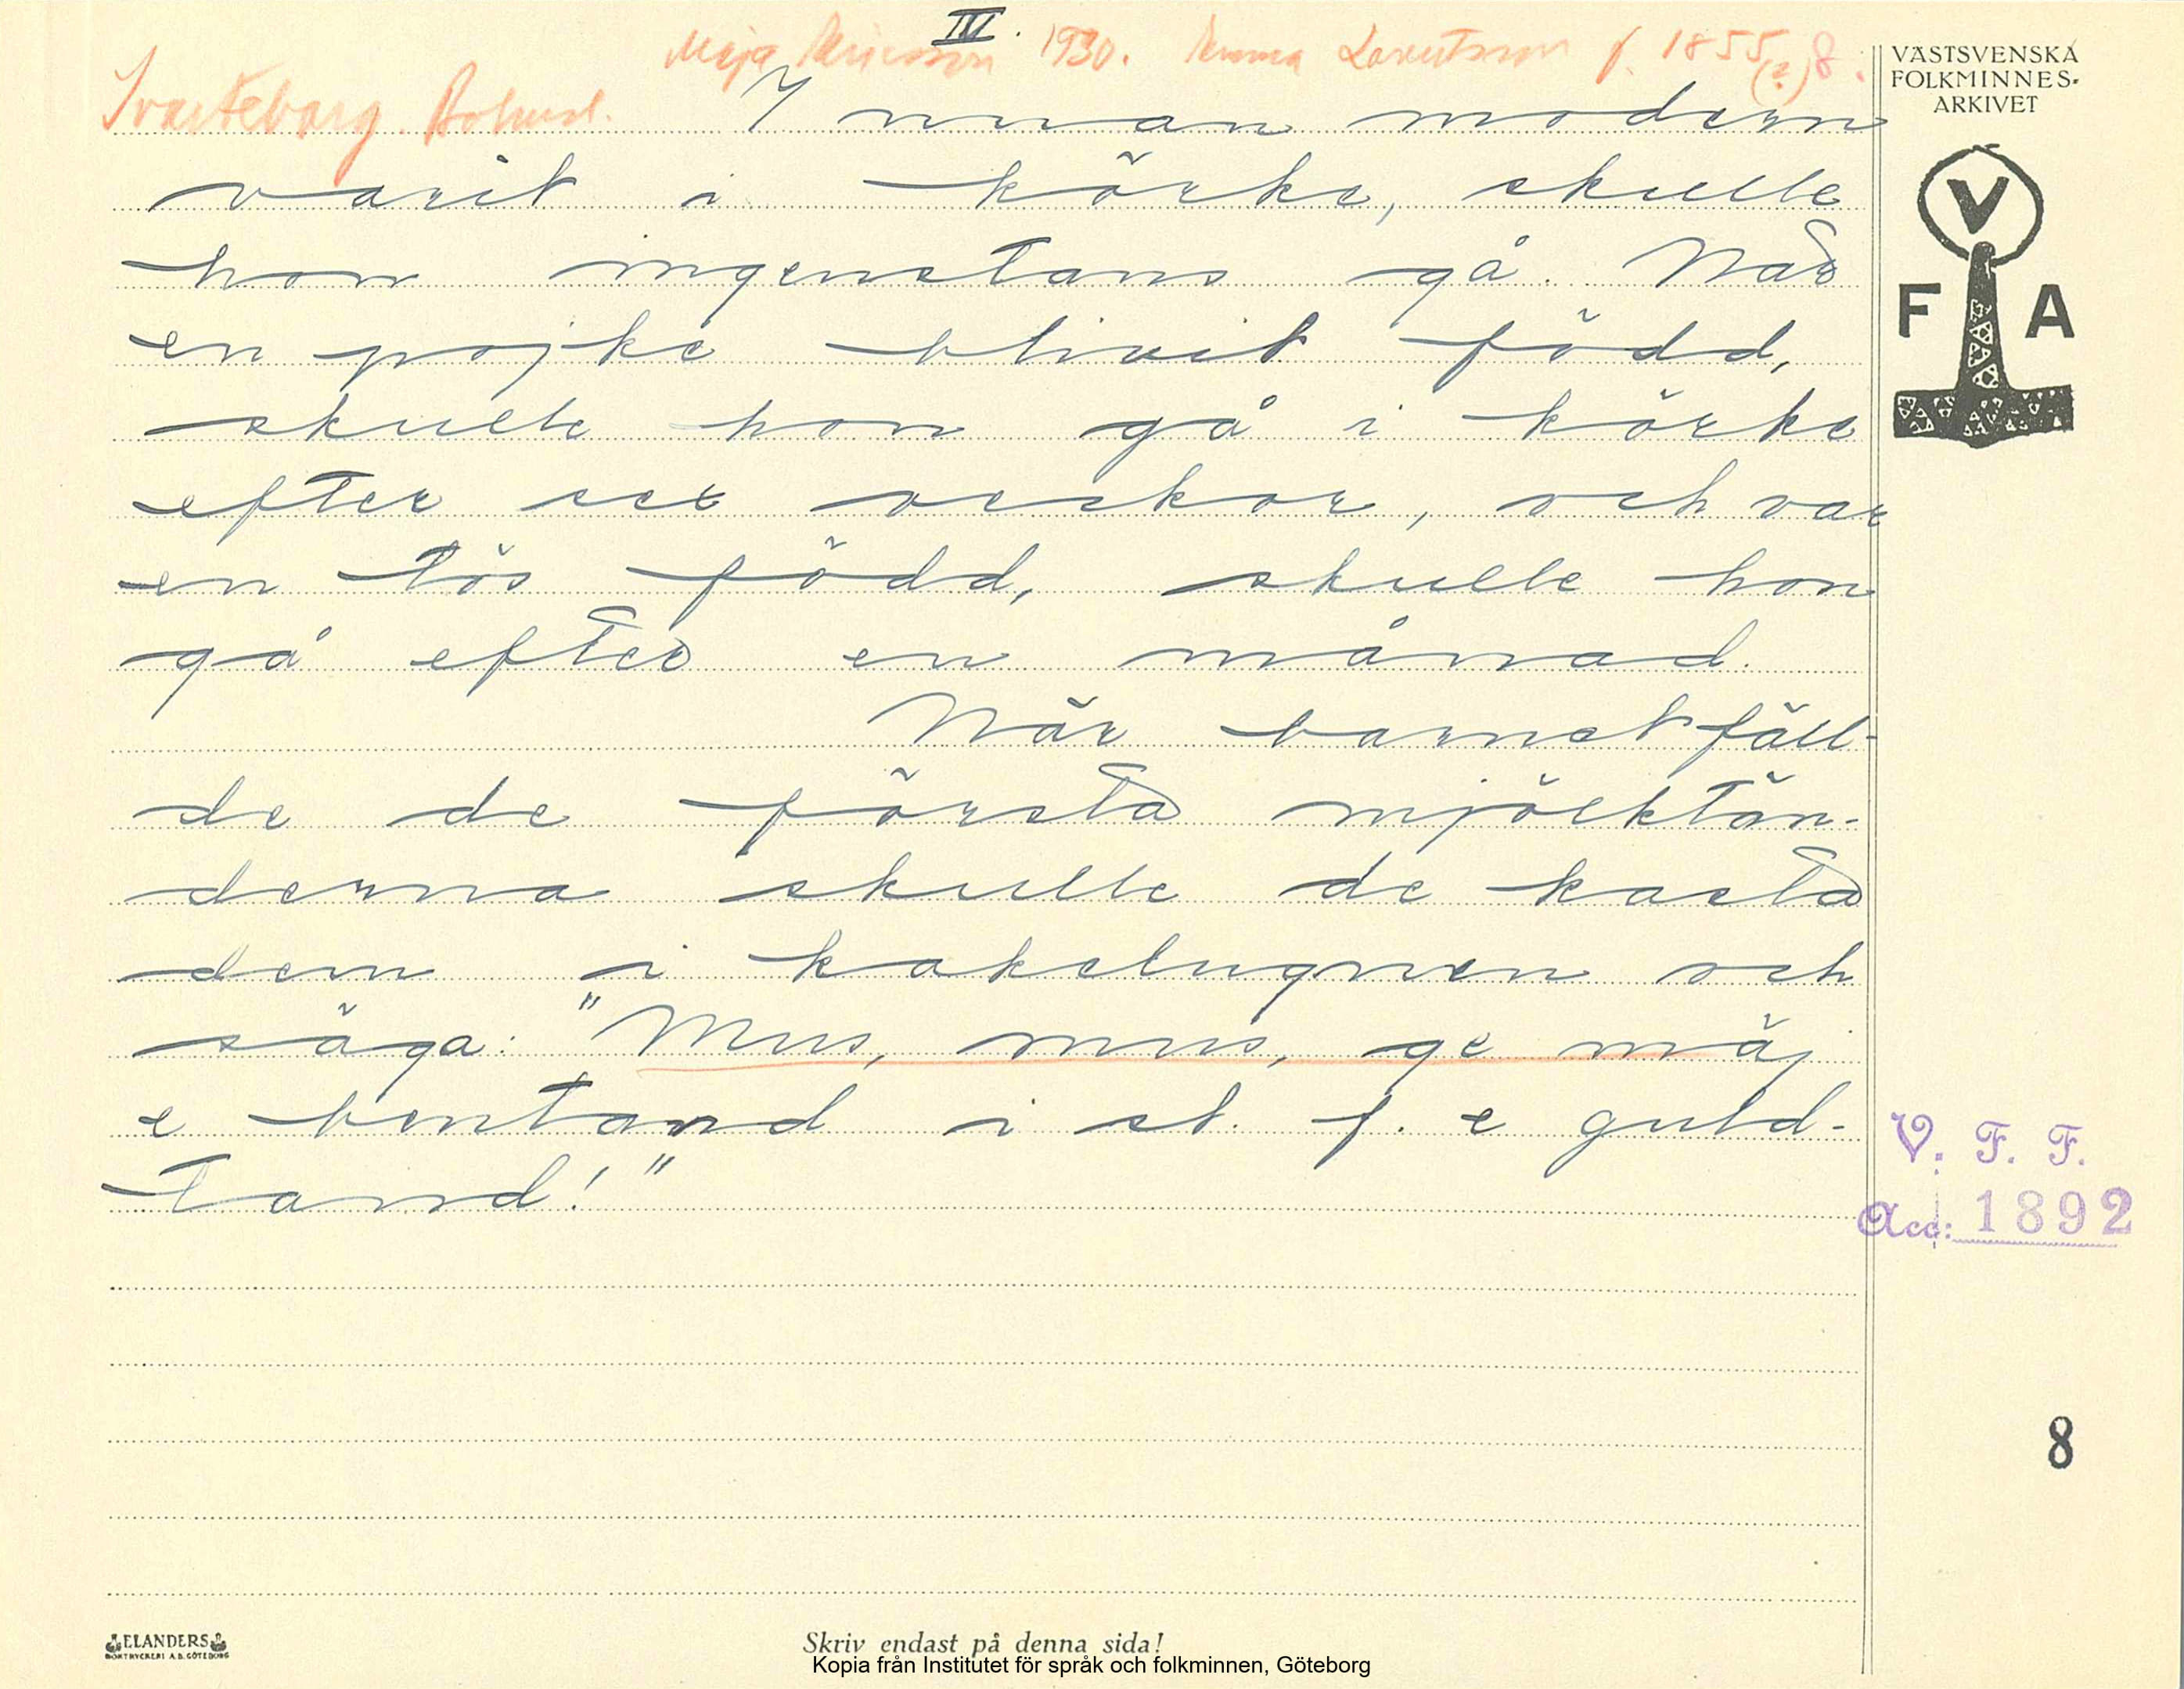 IV.
Maja Ericsson 1930. Emma Lorentsson f. 1855(?) 8.
Svarteborg. Bohusl.
Innan modern
varit i körke, skulle
hon ingenstans gå. När
en pojke blivit född,
skulle hon gå i körke
efter sex veckor, och var
en tös född, skulle hon
gå efter en månad.
När barnet fäll-
de de första mjölktän-
derna skulle de kasta
dem i kakelugnen och
säga: "Mus, mus, ge mäj
e bentand i st. f. e guld-
tand!"
VÄSTSVENSKA
FOLKMINNES-
ARKIVET
V
F A
V. F. F.
Acc: 1892
8
ELANDERS
BOKTRYCKERI A.B. GÖTEBORG
Skriv endast på denna sida!
Kopia från Institutet för språk och folkminnen, Göteborg